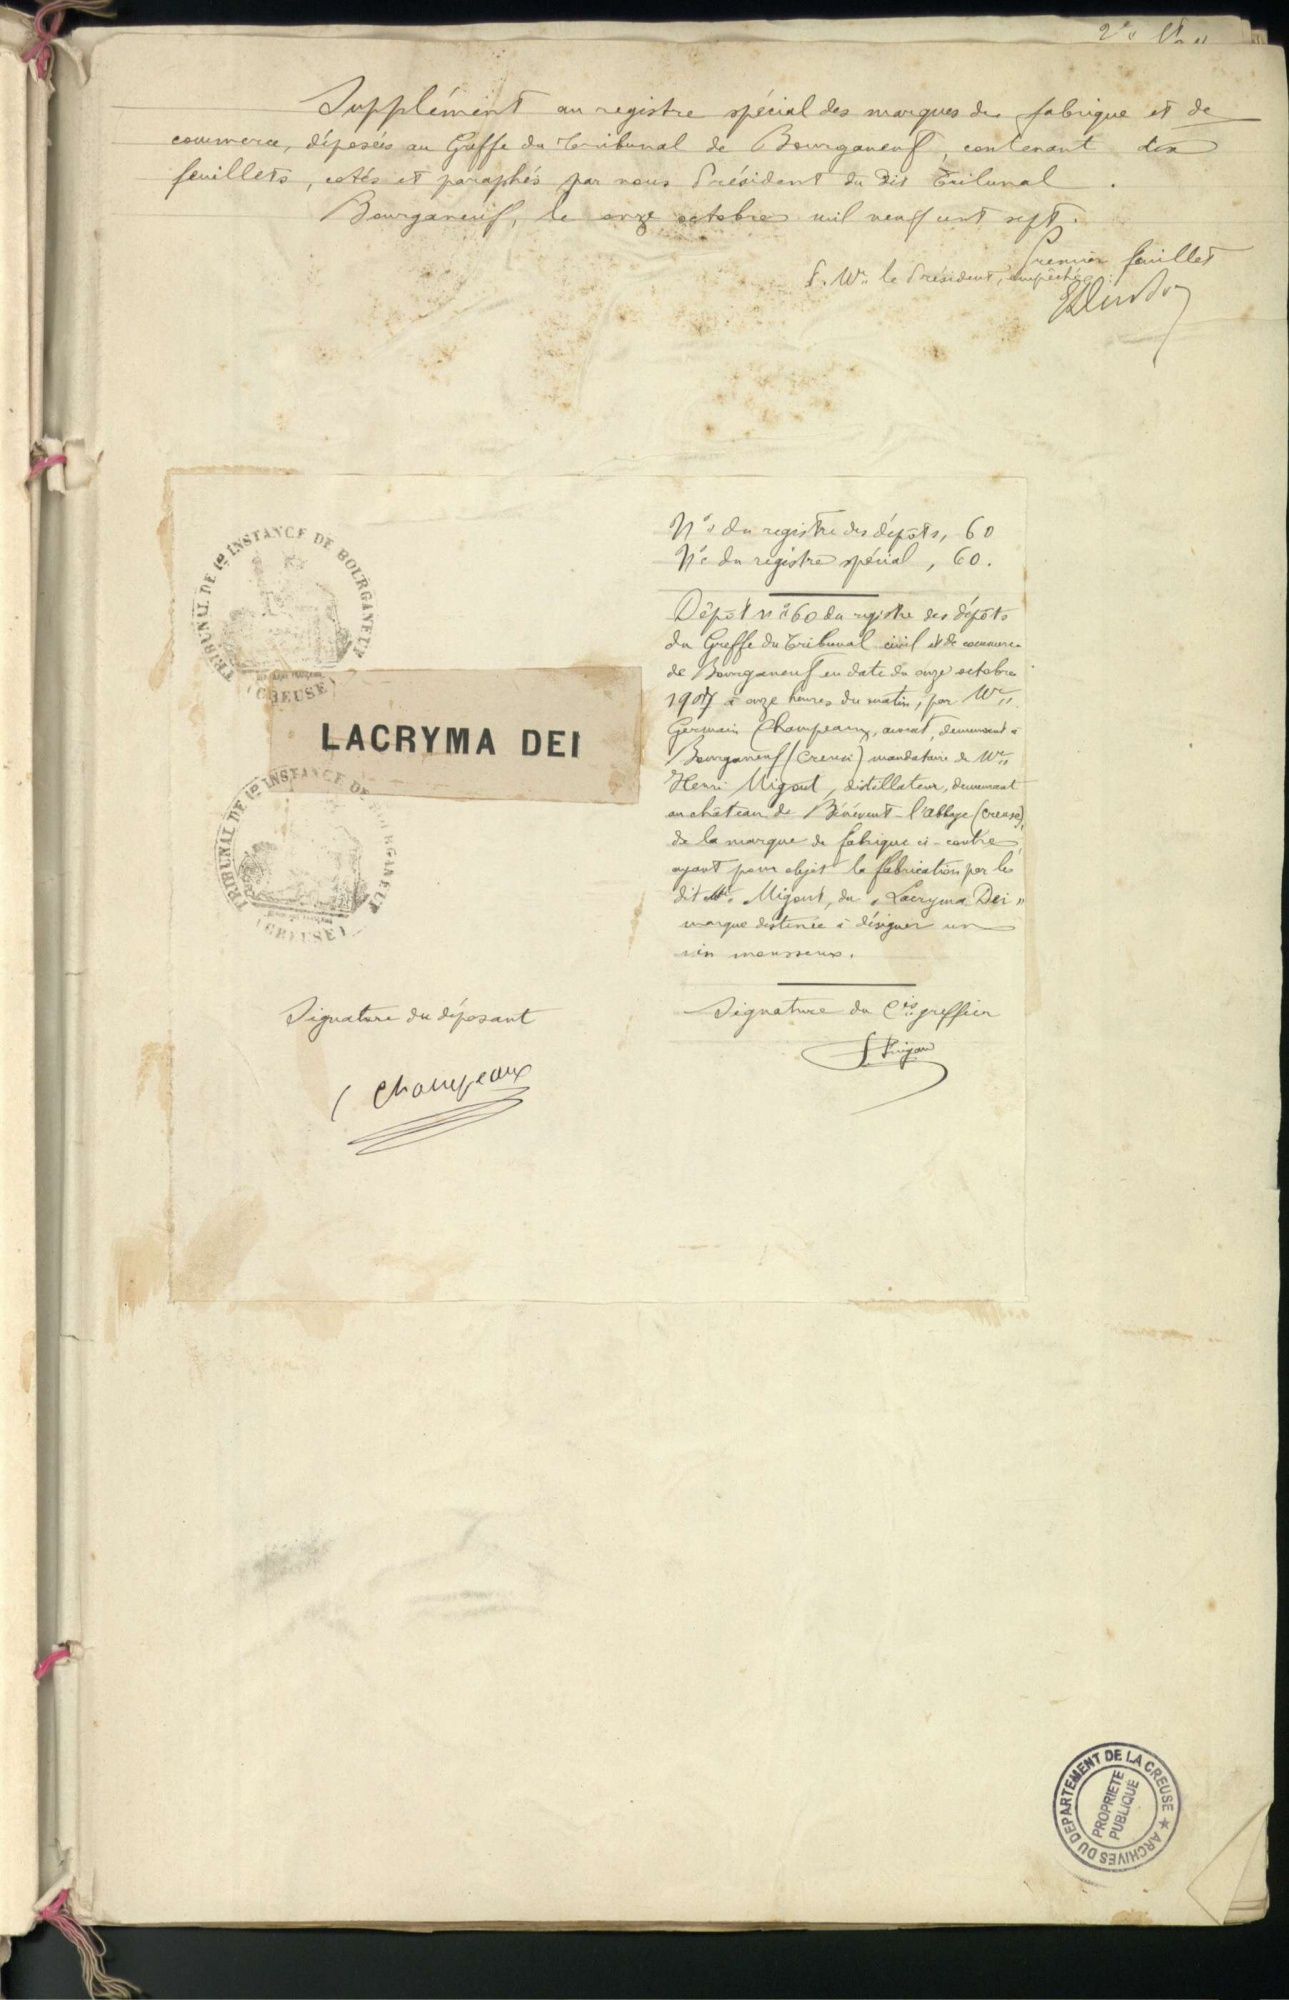 2e
Supplément au registre spécial des marques de fabrique et de
commerce, déposées au Greffe du Tribunal de Bourganeuf, contenant dix
feuillets, cotés et paraphés par nous Président du dit Tribunal.
Bourganeuf, le onze octobre mil neuf cent sept.
Premier feuillet
P. Mr. le Président, empêché :
TRIBUNAL DE 1re INSTANCE DE BOURGANEUF
(CREUSE)
LACRYMA DEI
TRIBUNAL DE 1re INSTANCE DE BOURGANEUF
(CREUSE)
Signature du déposant
Champeaux
No du registre des dépôts, 60
No du registre spécial, 60.
Dépôt no 60 du registre des dépôts
du Greffe du Tribunal civil et de commerce
de Bourganeuf en date du onze octobre
1907 à onze heures du matin, par Mr
Germain Champeaux, avocat, demeurant à
Bourganeuf (Creuse) mandataire de Mr
Henri Migout, distillateur, demeurant
au château de Bénévent-l'Abbaye (Creuse),
de la marque de fabrique ci-contre,
ayant pour objet la fabrication par le
dit Mr Migout, du « Lacryma Dei »
marque destinée à désigner un
vin mousseux.
Signature du Cis greffier
ARCHIVES DU DEPARTEMENT DE LA CREUSE ★
PROPRIETE
PUBLIQUE